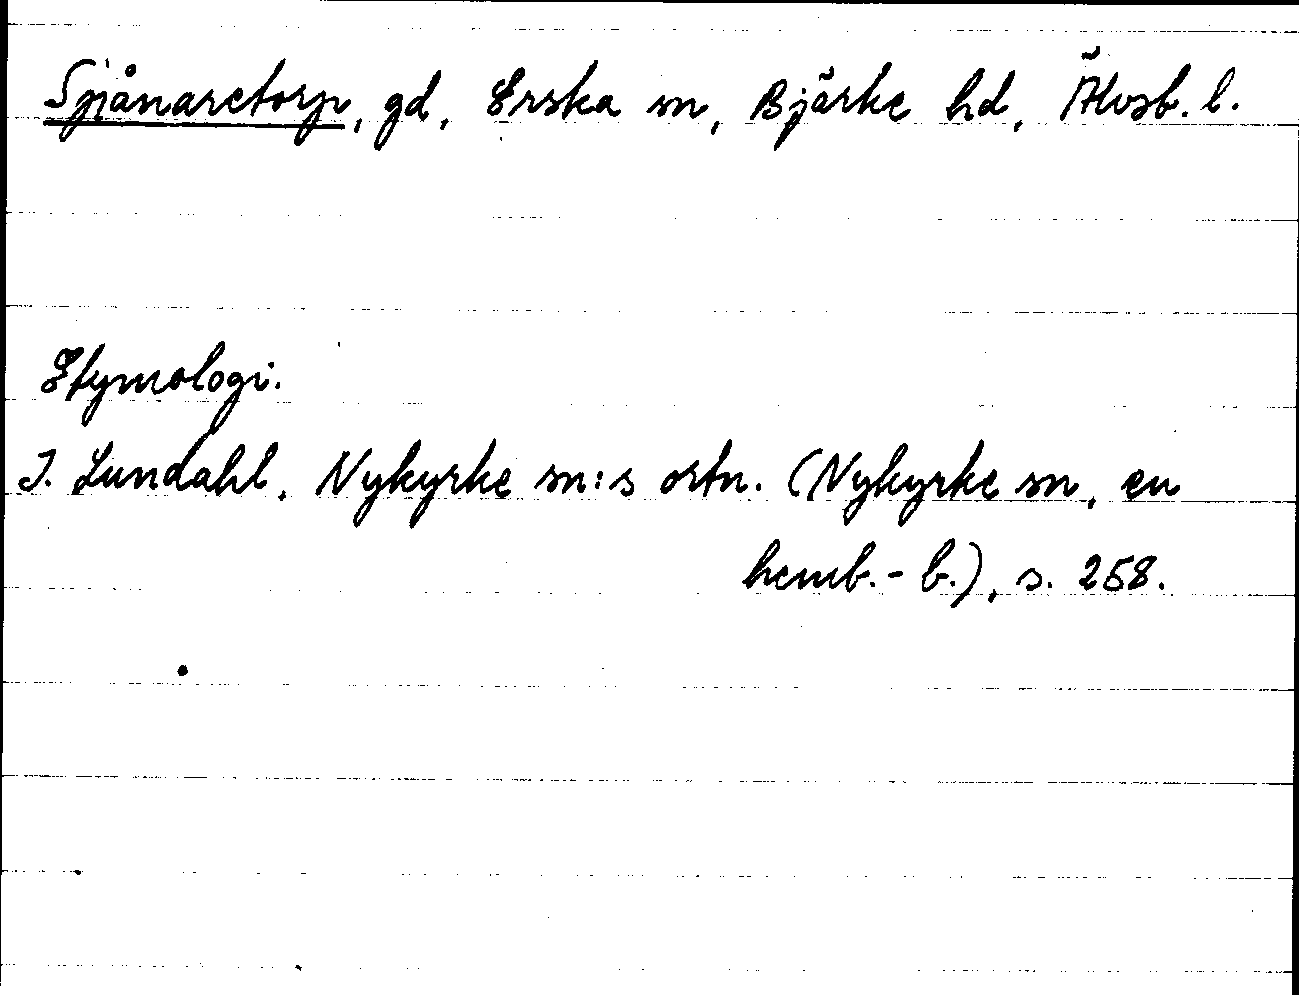 Spjånaretorp, gd, Erska sn, Bjärke hd, Älvsb. l.
Etymologi.
I. Lundahl, Nykyrke sn:s ortn. (Nykyrke sn, en
hemb.- b.), s. 258.